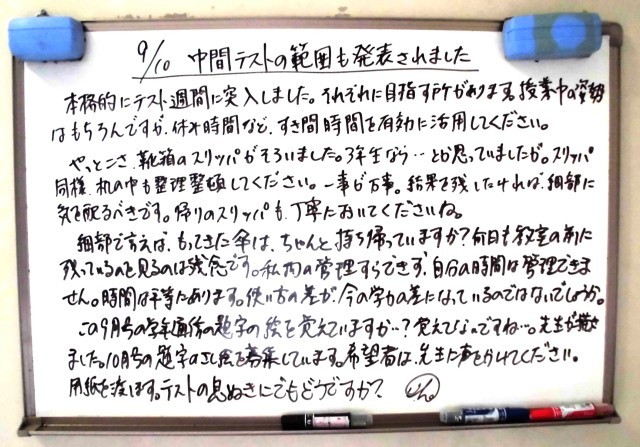 9/10 中間テストの範囲も発表されました
本格的にテスト週間に突入しました。それぞれに目指す所があります。授業中の姿勢
はもちろんですが、休み時間など、すき間時間を有効に活用してください。
やっとこさ、靴箱のスリッパがそろいました。3年生なら…とか思っていましたが。スリッパ
同様、机の中も整理整頓してください。一事が万事。結果を残したければ、細部に
気を配るべきです。帰りのスリッパも、丁寧においてくださいね。
細部で言えば、もってきた傘は、ちゃんと持ち帰っていますか?何日も教室の前に
残っているのを見るのは残念です。私物の管理すらできず、自分の時間は管理できま
せん。時間は平等にあります。使い方の差が、今の学力の差になっているのではないでしょうか。
この9月号の学年通信の題字の絵を覚えていますか…?覚えてないですね…。先生が描き
ました。10月号の題字のさし絵を募集しています。希望者は、先生に声をかけてください。
用紙を渡します。テストの息ぬきにでもどうですか?